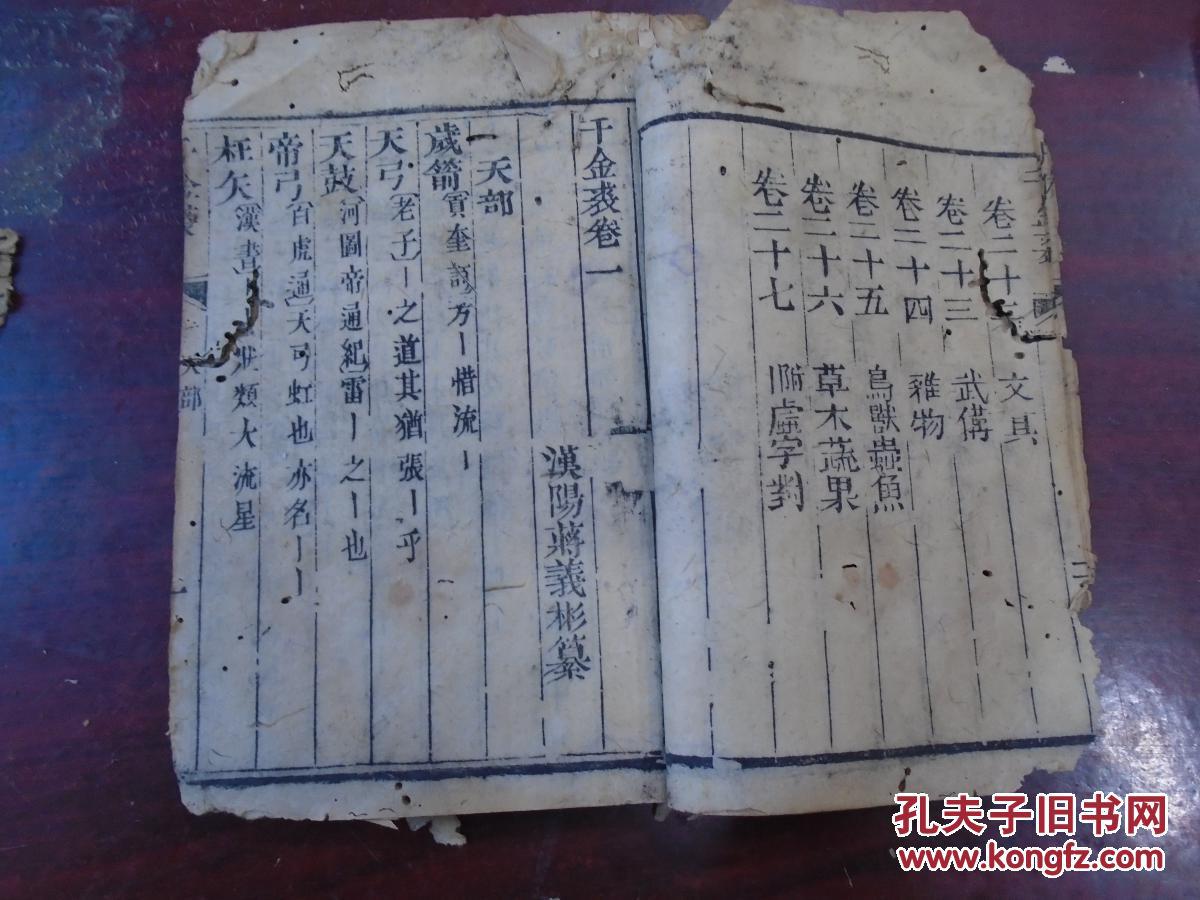 卷二十二　文具
卷二十三　武備
卷二十四　雜物
卷二十五　鳥獸蟲魚
卷二十六　草木蔬果
卷二十七　附虛字對
千金裘卷一
漢陽蔣義彬纂
一天部
歲箭(賈奎詩)方ー惜流ー
天弓(老子)ー之道其猶張ー乎
天鼓(河圖帝通紀)雷ー之ー也
帝弓(白虎通)天弓虹也亦名ーー
枉矢(漢書)狀類大流星
天部
孔夫子旧书网
www.kongfz.com